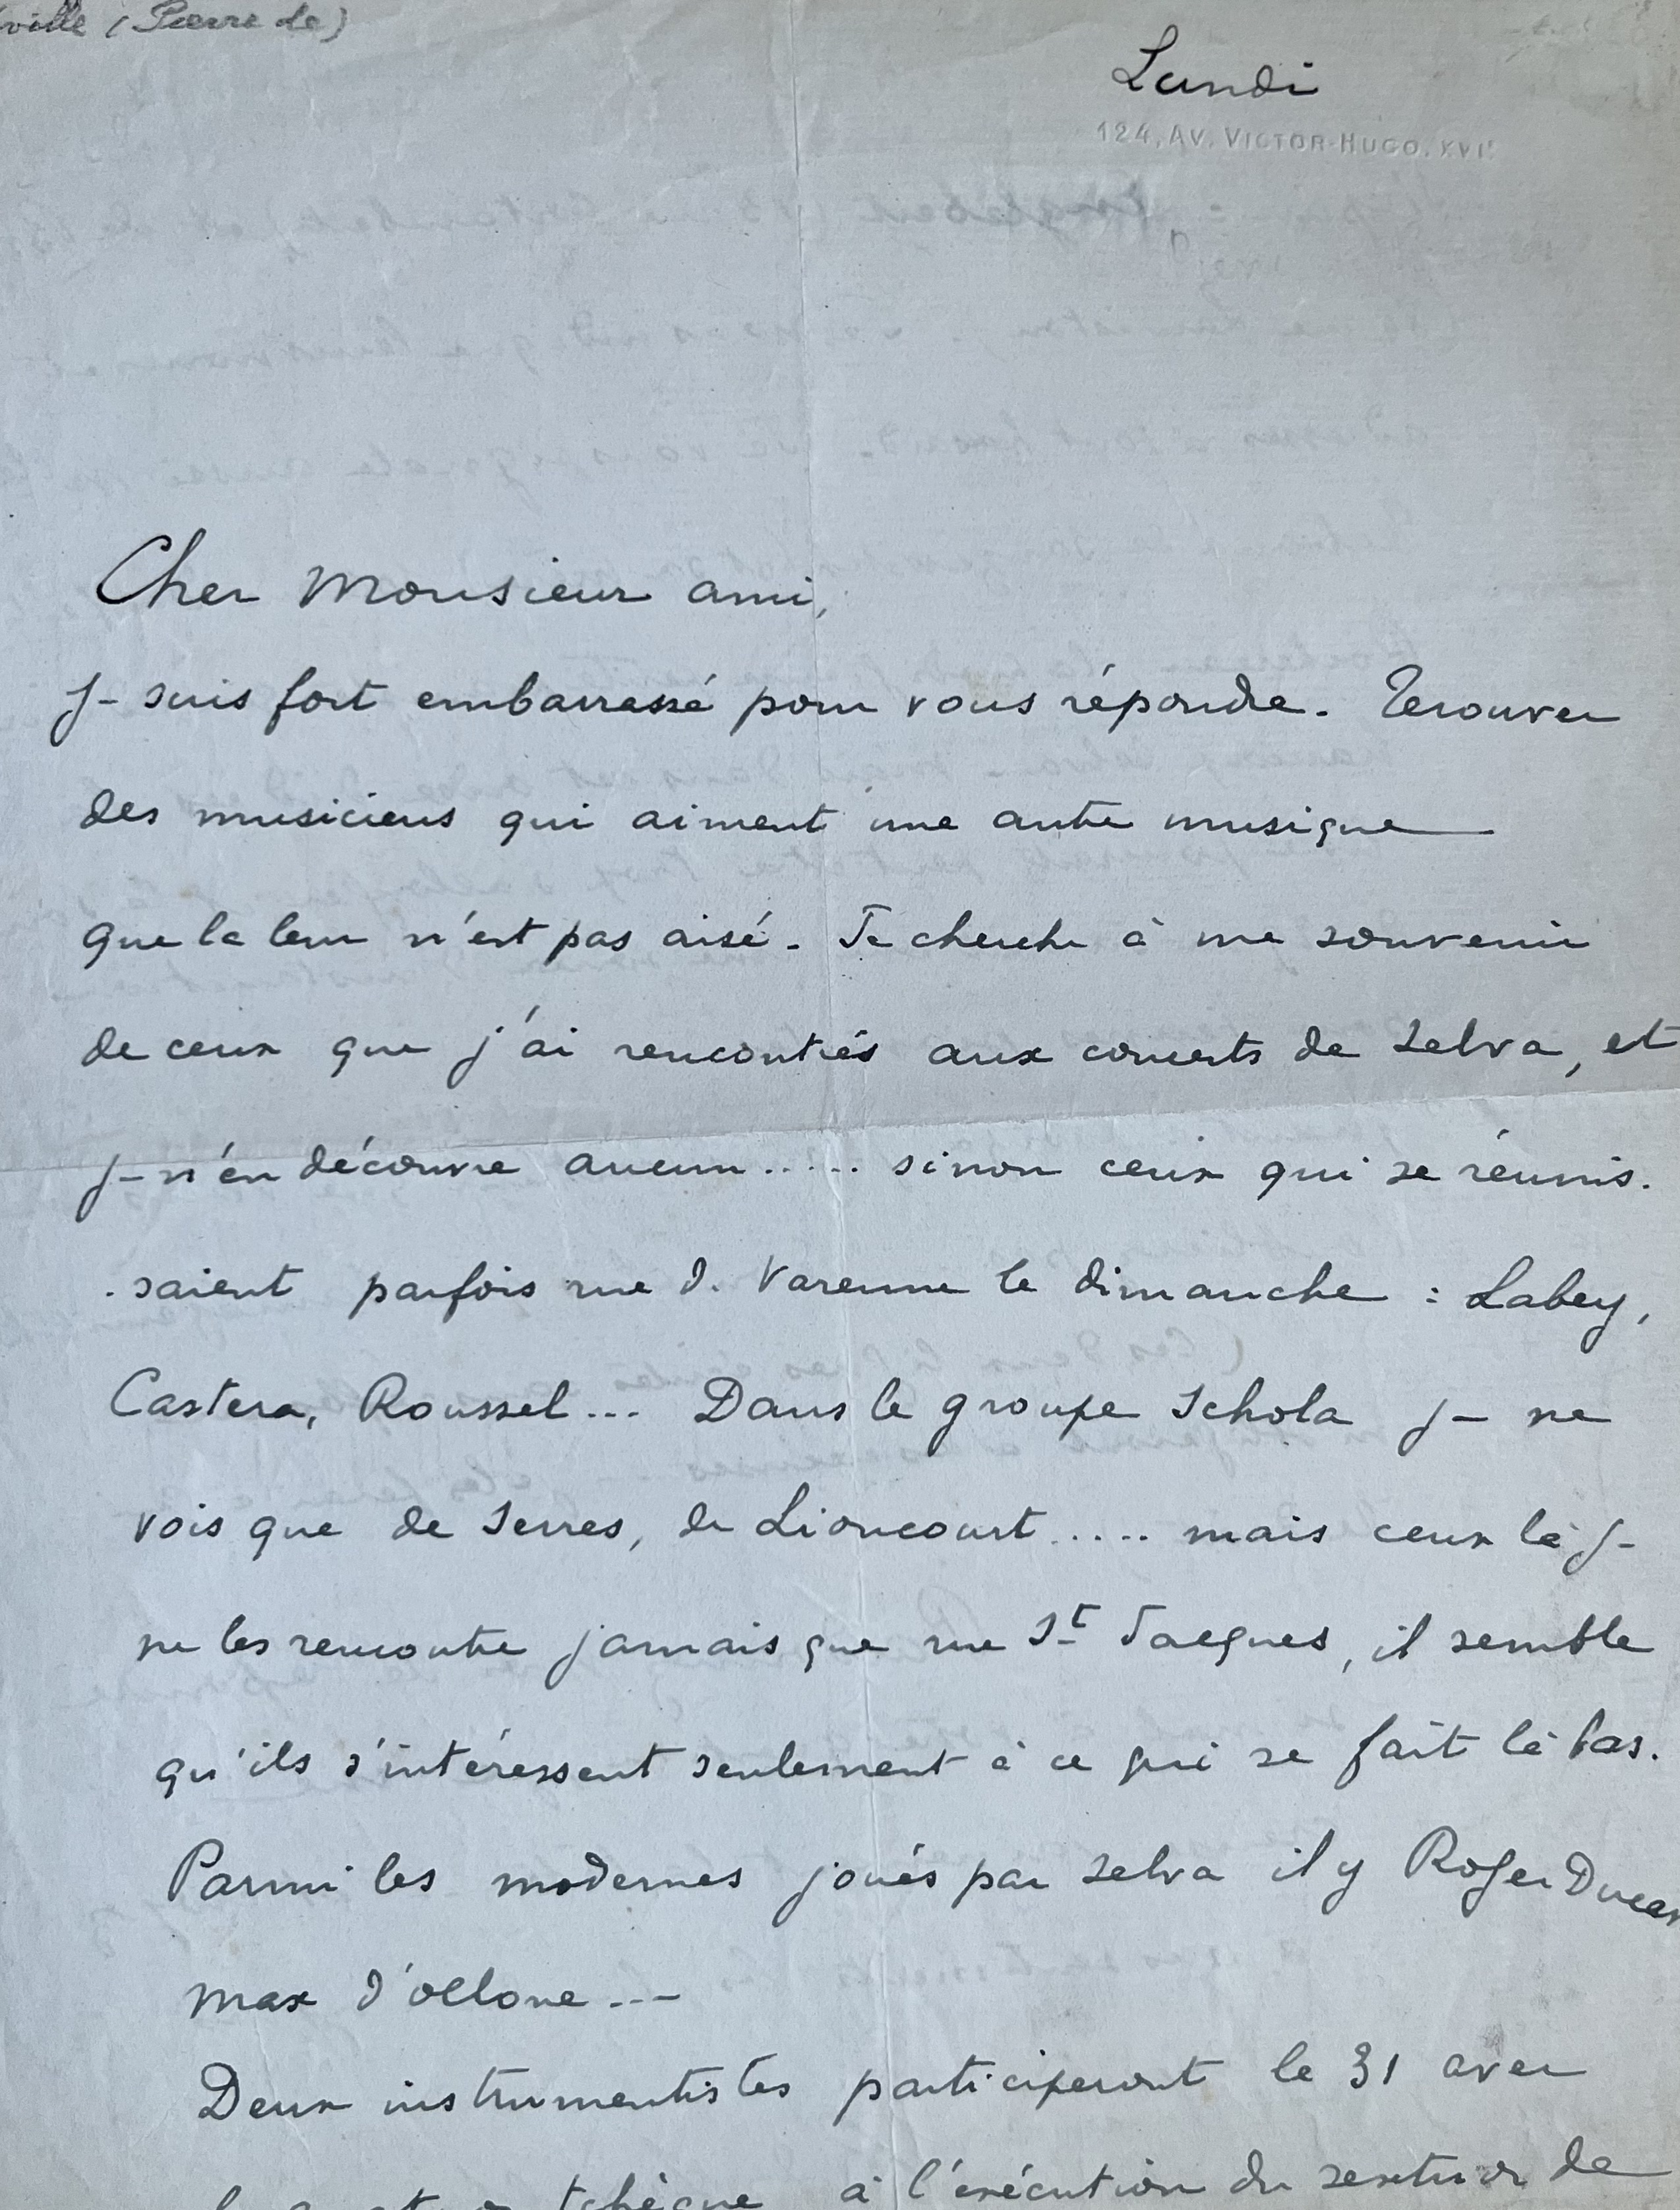 ville (Pierre de)
Lundi
124, AV. VICTOR-HUGO. XVIe
Cher Monsieur ami,
J- suis fort embarrassé pour vous répondre. Trouver
des musiciens qui aiment une autre musique
que la leur n'est pas aisé. Je cherche à me souvenir
de ceux que j'ai rencontrés aux concerts de Selva, et
j- n'en découvre aucun ..... sinon ceux qui se réunis-
-saient parfois rue d. Varenne le dimanche : Labey,
Castera, Roussel ... Dans le groupe Schola j- ne
vois que de Serres, de Lioncourt ..... mais ceux là j-
ne les rencontre jamais que rue St Jacques, il semble
qu'ils s'intéressent seulement à ce qui se fait là bas.
Parmi les modernes joués par Selva il y Roger Ducas
Max d'Ollone ...
Deux instrumentistes participeront le 31 avec
tchèque à l'exécution du sextuor de